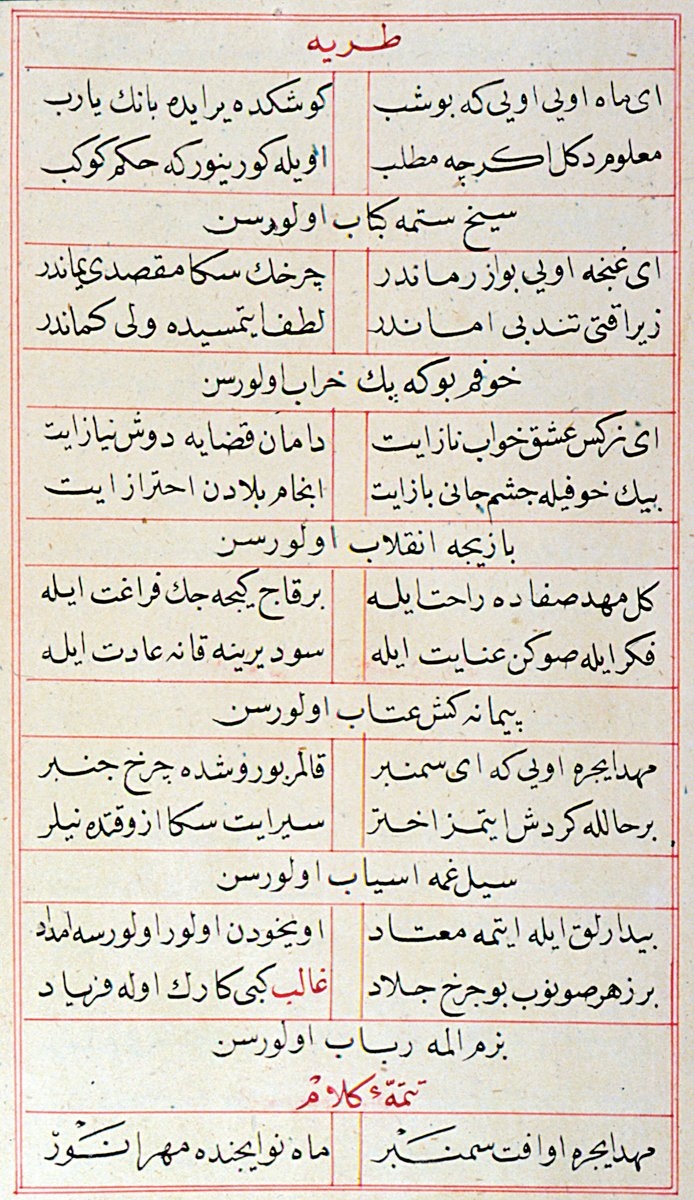 طربه
ای ماه اویی اویی که بو شب کوشکده یر ایده بانك یا رب
معلوم دکل اکرچه مطلب اویله کورینور که حکم کوکب
سیخ ستمه کباب اولورسن
ای غنجه اویی بو از زماندر چرخك سکا مقصدی یماندر
زیرا قتی تند بی اماندر لطف ایتمسیده ولی کماندر
خوفم بو که پك خراب اولورسن
ای نرکس عشق خواب ناز ایت دامان قضایه دوش نیاز ایت
بیك خوفیله جشم جانی باز ایت انجام بلادن احتراز ایت
بازیجه انقلاب اولورسن
کل مهد صفاده راحت ایله بر قاج کیجه جك فراغت ایله
فکر ایله صوکن عنایت ایله سود یرینه قانه عادت ایله
پیمانه کش عتاب اولورسن
مهد ایجره اویی که ای سمنبر قالمز بو روشده چرخ جنبر
بر حالله کردش ایتمز اختر سیر ایت سکا از وقتده نیلر
سیل غمه اسیاب اولورسن
بیدارلق ایله ایتمه معتاد اویخودن اولور اولورسه امداد
بر زهر صونوب بو چرخ جلاد غالب کبی کارك اوله فریاد
بزم المه رباب اولورسن
تتمهٔ کلام
مهد ایجره او افت سمنبر ماه نو ایجنده مهر انور